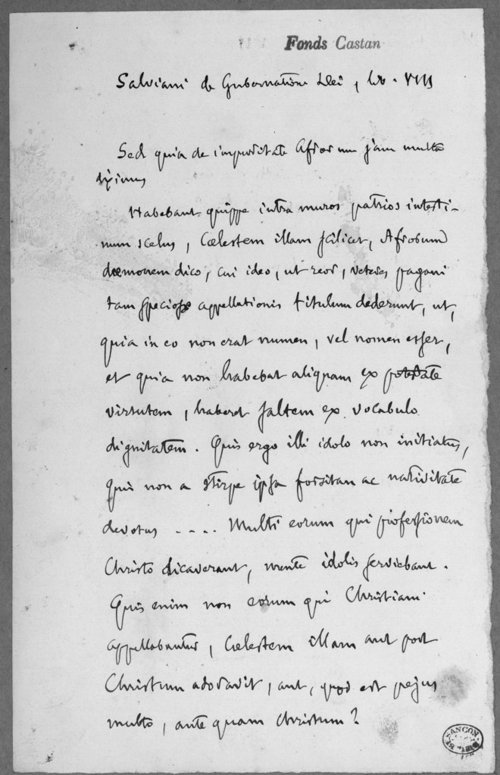 Fonds Castan
Salviani de Gubernatione Dei, lib. VIII
Sed quia de impuritate Afrorum jam multa
diximus
Habebant quippe intra muros patrios intesti-
num scelus, Cœlestem illam scilicet, Afrorum
dæmonem dico, cui ideo, ut reor, veteres pagani
tam speciosæ appellationis titulum dederunt, ut,
quia in eo non erat numen, vel nomen esset,
et quia non habebat aliquam ex potestate
virtutem, haberet saltem ex vocabulo
dignitatem. Quis ergo illi idolo non initiatus,
Quis non a stirpe ipsa forsitan ac nativitate
devotus .... Multi eorum qui professionem
Christo dicaverant, mente idolis serviebant.
Quis enim non eorum qui Christiani
appellabantur, Cœlestem illam aut post
Christum adoravit, aut, quod est pejus
multo, ante quam Christum?